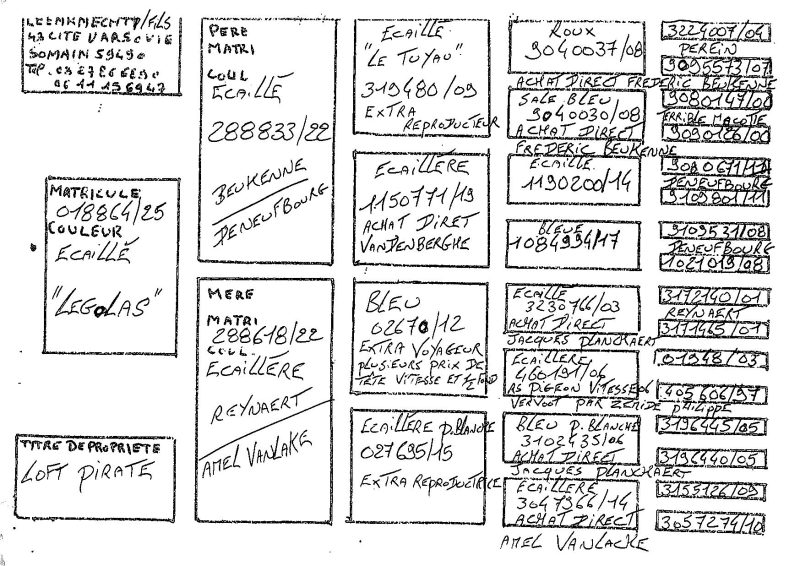 43 CITE VARSOVIE
SOMAIN 59490
MATRICULE
018864/25
COULEUR
ECAILLÉ
"LEGOLAS"
TITRE DE PROPRIETE
LOFT PIRATE
PERE
MATRI
COUL
ECAILLÉ
288833/22
BEUKENNE
DENEUFBOURG
MERE
MATRI
288618/22
COUL
ECAILLÈRE
REYNAERT
AMEL VANLAKE
ECAILLÉ
"LE TUYAU"
319480/09
EXTRA
REPRODUCTEUR
ECAILLÈRE
1150771/19
ACHAT DIRET
VANDENBERGHE
BLEU
02670/12
EXTRA VOYAGEUR
PLUSIEURS PRIX DE
TETE VITESSE ET 1/2 FOND
ECAILLÈRE P.BLANCHE
027695/15
EXTRA REPRODUCTRICE
ROUX
9040037/08
ACHAT DIRECT FREDERIC BEUKENNE
SALE BLEU
9040030/08
ACHAT DIRECT
FREDERIC BEUKENNE
ECAILLE
1190200/14
BLEUE
1084994/17
ECAILLE
3230766/03
ACHAT DIRECT
JACQUES PLANCKAERT
ECAILLERE
460191/06
AS PIGEON VITESSE 06
VERVOOT PAR ZENIDE PHILIPPE
BLEU P.BLANCHE
3102435/06
ACHAT DIRECT
JACQUES PLANCKAERT
ECAILLERE
3047966/14
ACHAT DIRECT
AMEL VANLACKE
3224007/04
PEREIN
9095573/07
9080147/00
TERRIBLE MACOTTE
9090186/00
DENEUFBOURG
9109801/11
9109531/08
DENEUFBOURG
1021019/98
3172140/01
REYNAERT
3171465/01
01948/03
405606/97
3196445/05
3196440/05
3155126/09
3057274/10